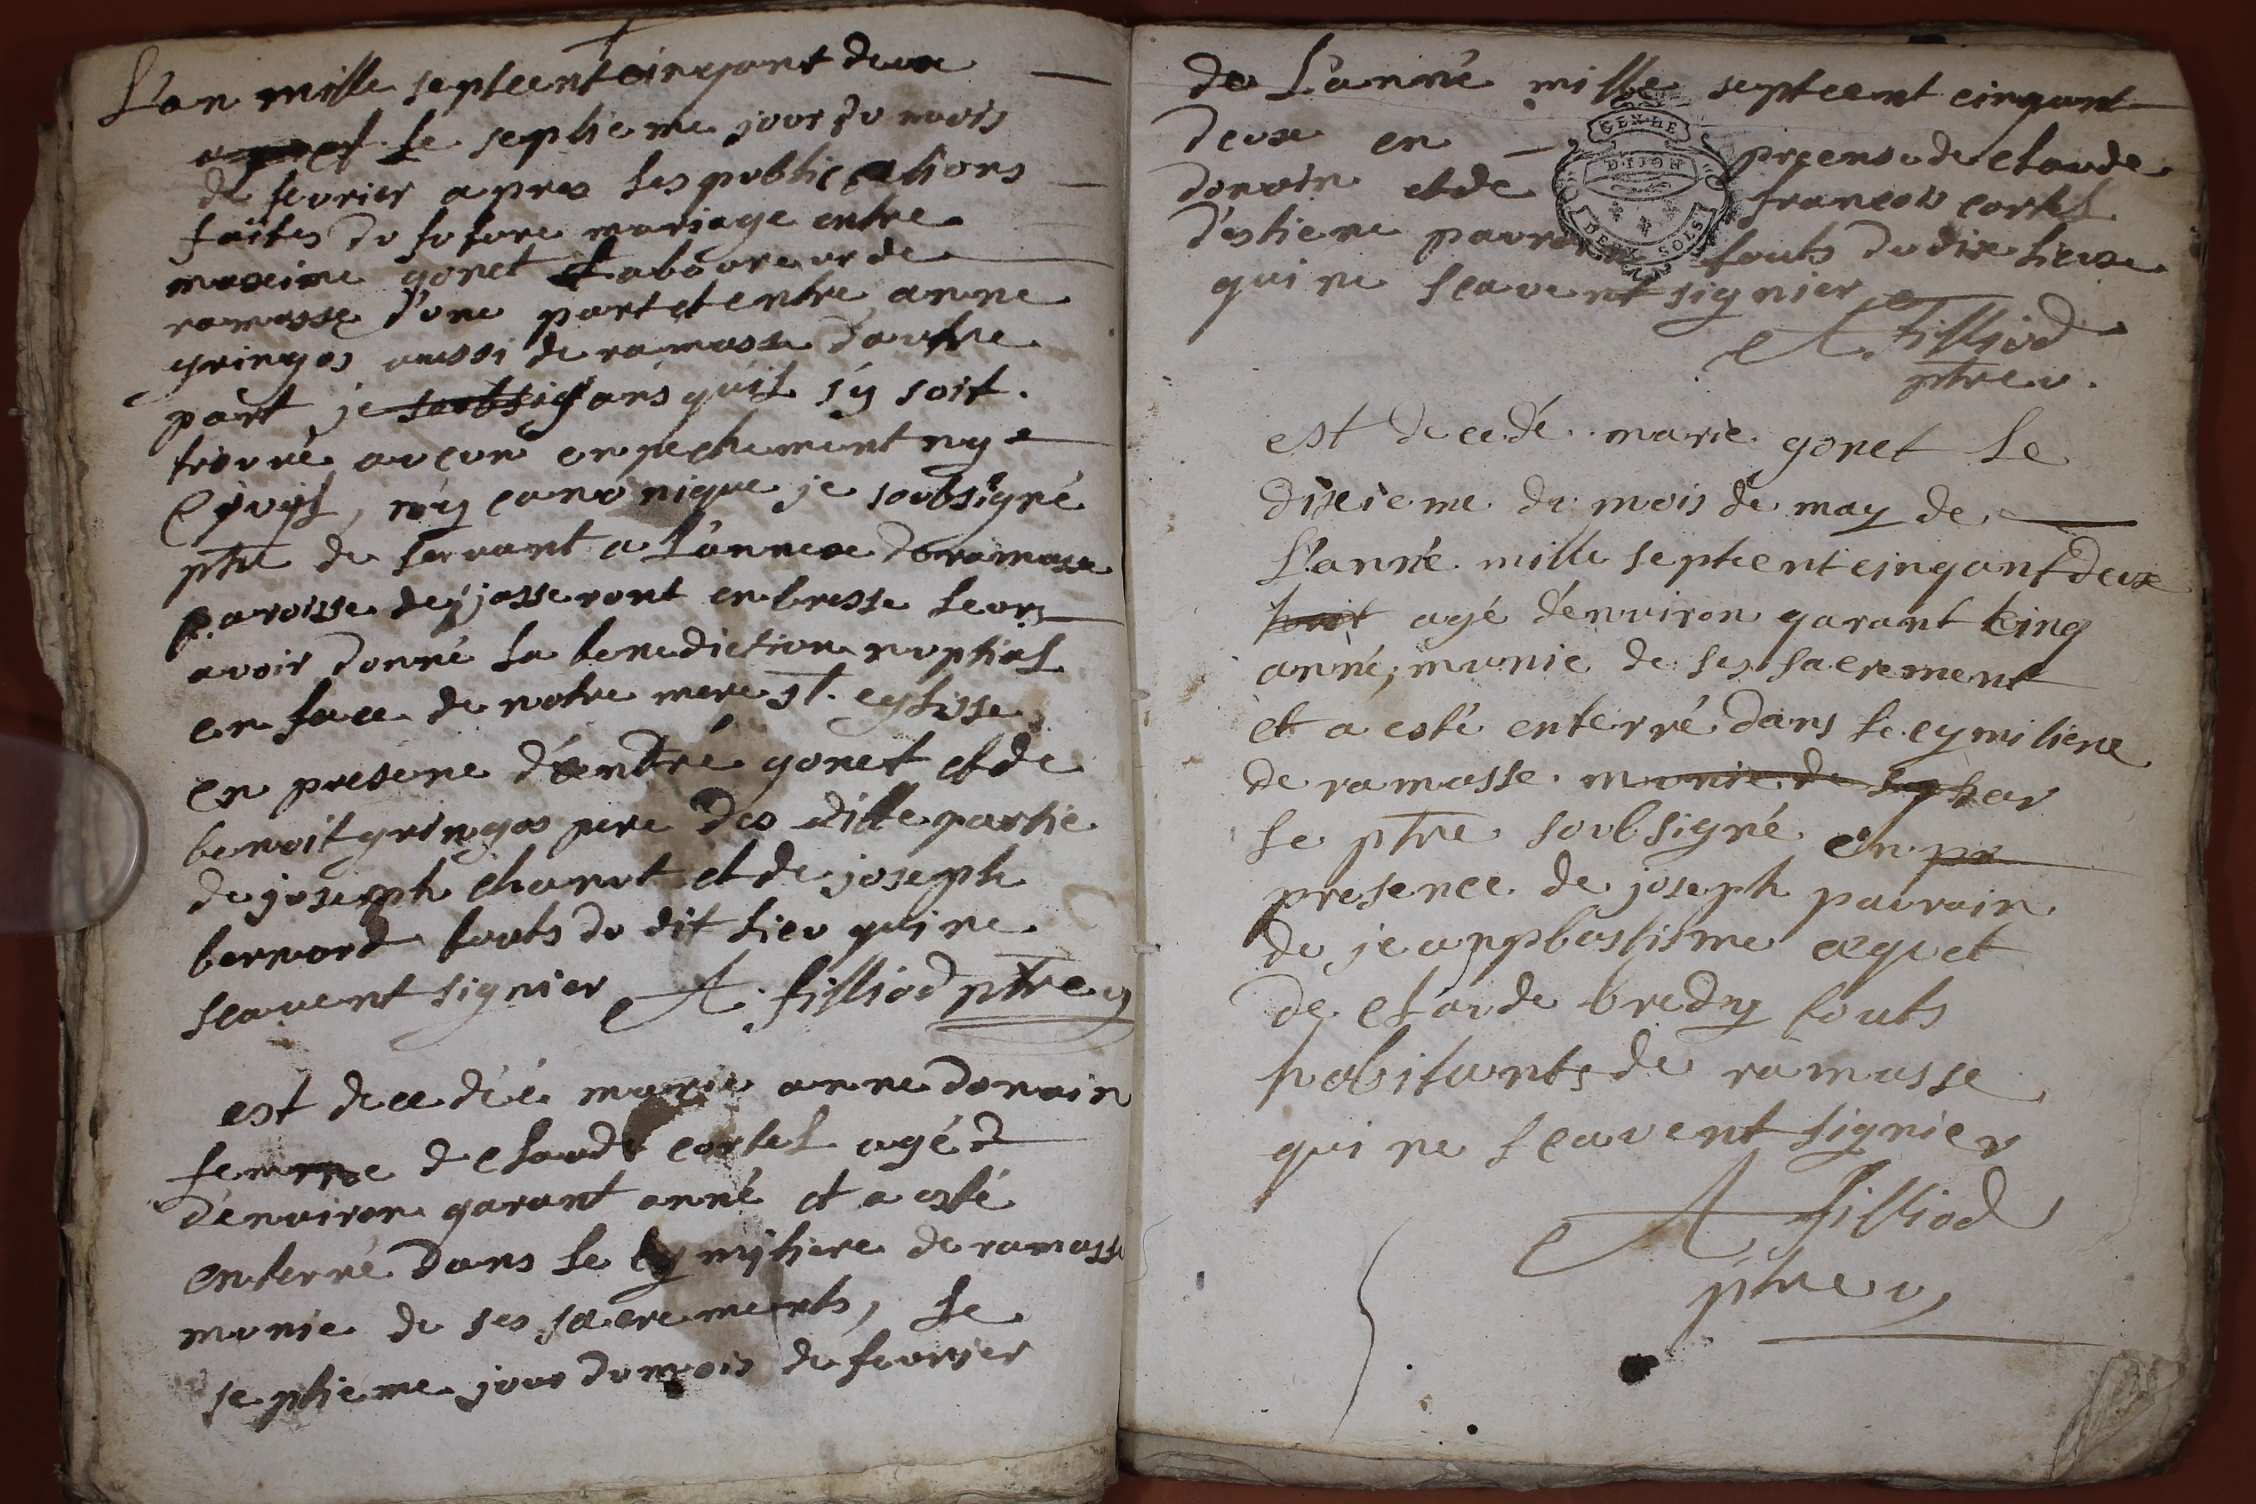 L'an mille septcent cinqant deux
le septieme jour du mois
de feurier apres les publications
faites du future mariage entre
maxime gonet Laboureur de
ramasse d'une part et entre anne
gringos aussi de ramasse dautre
part je soubsig sans quil s'y soit
trouvé aucun enpechement ny
Civil, ny canonique je soubsigné
ptre de seruant a L'annexe de ramasse
paroisse de jasseront en bresse leurs
avoir donné la benediction nuptial
en face de notre mere st. eglisse
en presene d'andré gonet et de
benoit gringos pere des ditte partie
de joseph chanut et de joseph
bernard touts du dit lieu qui ne
scavent signier A. filliod ptre v
est decedéé marie anne donain
femme de claude cortel agé
d'enuiron qarant anné et a esté
enterré dans le cymitiere de ramasse
munie de ses sacrements, le
septieme jour du mois de feurier
de L'anné mille septcent cinqant
deux en preens de claude
donain et de francois cortel
d'estiene pavrain touts du dix lieux
qui ne scavent signier
A. filliod
ptre v.
GEN DE
DIJON
DEUX SOLS
est decedé marie gonet le
dixieme du mois de may de
L'anné mille septcent cinqant deux
huit agé d'enuiron qarant cinq
anné, munie de ses sacrement
et a esté enterré dans le cymitiere
de ramasse munie de par
le ptre soubsigné en pr
presence de joseph pavrain
de jeanpbastisme
de claude bredy touts
habitants de ramasse
qui ne scavent signier
A filliod
ptre v,